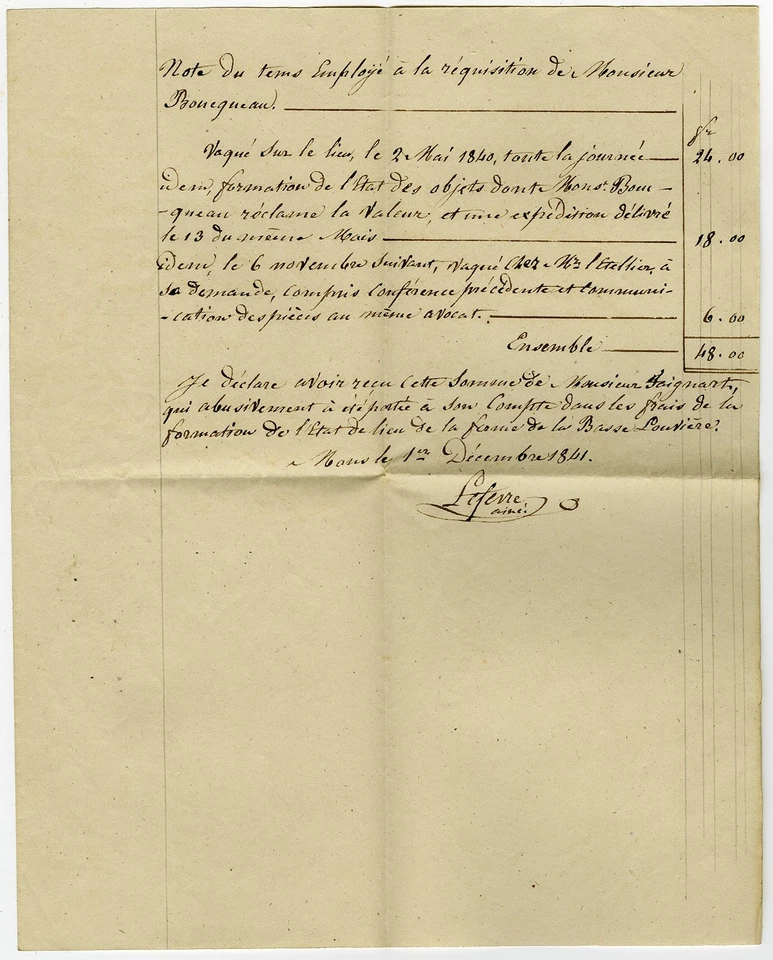 Note du tems Employé à la réquisition de Monsieur
Boucqueau.
fr
Vaqué sur le lieu, le 2 Mai 1840, toute la journée 24.00
idem, formation de l'Etat des objets dont Monsr. Bouc-
-queau réclame la Valeur, et une expédition délivré
le 13 du même Mois 18.00
idem, le 6 novembre suivant, vaqué chez Mr. letellier, à
sa demande, compris conférence précédente et communi-
-cation des pièces au même avocat. 6.00
Ensemble 48.00
Je déclare avoir reçu cette somme de Monsieur Gaignart,
qui abusivement à été portée à son compte dans les frais de la
formation de l'Etat de lieu de la ferme de la Basse Louvière.
Mons le 1er Décembre 1841.
Lefevre
ainé.